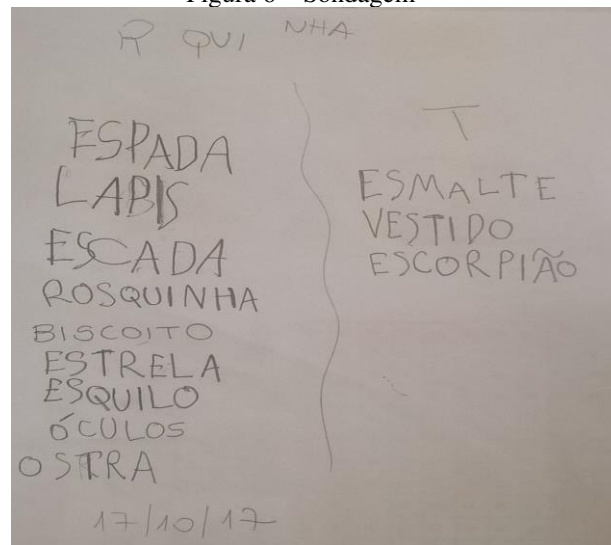 Figura 6 – Sondagem
R QUI NHA
ESPADA
LABIS
ESCADA
ROSQUINHA
BISCOITO
ESTRELA
ESQUILO
ÓCULOS
OSTRA
17/10/17
T
ESMALTE
VESTIDO
ESCORPIÃO